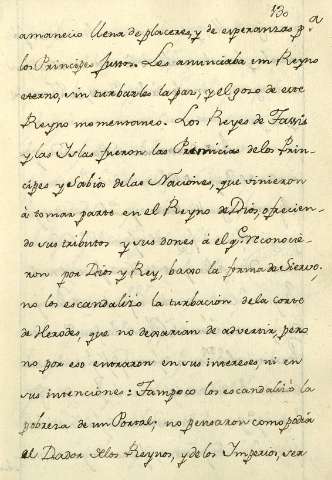 130
amanecio llena de placeres, y de esperanzas pᵃ
los Principes Justos. Les anunciaba un Reyno
eterno, sin turbarles la paz, y el gozo de este
Reyno momentaneo. Los Reyes de Tarsis
y las Islas fueron las Primicias de los Prin-
cipes y Sabios de las Naciones, que vinieron
à tomar parte en el Reyno de Dios, ofrecien-
do sus tributos y sus dones à el q.ᵉ reconocie-
ron por Dios y Rey, baxo la forma de Siervo,
no los escandalizò la turbacion de la corte
de Herodes, que no dexarian de advertir, pero
no por eso entraron en sus intereses, ni en
sus intenciones: Tampoco los escandalizò la
pobreza de un Portal; no pensaron como podia
el Dador de los Reynos, y de los Imperios, ser